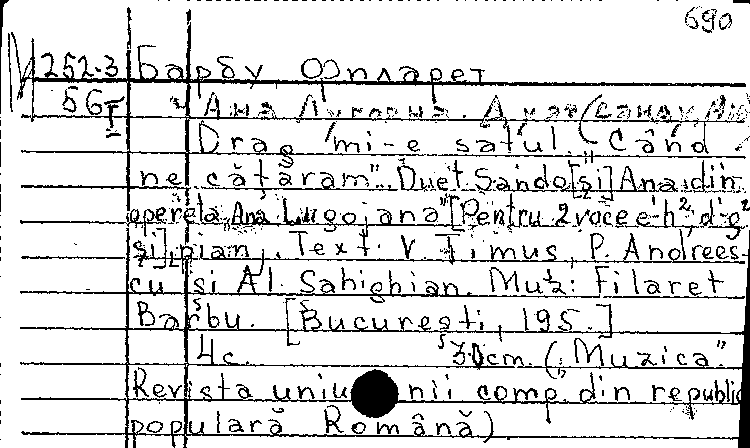 690
М 252-3 Барбу, Филарет
56 I "Ана Лугожана". Дуэт (Санду, Ан
Drag mi-e satul. Când
ne cățăram". Duet Sando [și] Ana din
opereta "Ana Lugojana" [Pentru 2 voce e-h², d-g²
și] pian. Text: V. Timus, P. Andrees-
cu si Al. Sahighian. Muz: Filaret
Barbu. [București, 195.]
4c. 30cm. ("Muzica"
Revista uniu nii comp. din republic
populară Română)